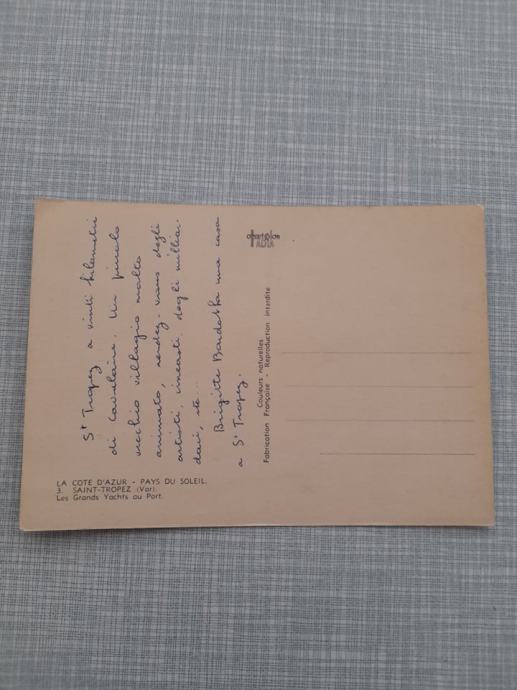 LA COTE D'AZUR - PAYS DU SOLEIL.
3. SAINT-TROPEZ (Var).
Les Grands Yachts au Port.
St Tropez a vinti kilometri
di Cavalaire. Un piccolo
vecchio villaggio molto
animato, rendez-vous degli
artisti, cineasti, degli milliar-
dari, etc...
Brigitte Bardot ha una casa
a St Tropez.
Fabrication Française - Reproduction interdite
Couleurs naturelles